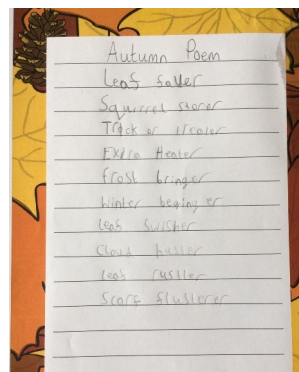 Autumn Poem
Leaf faller
Squirrel storer
Trick or treater
Extra Heater
Frost bringer
Winter begining er
Leaf swisher
Cloud
leaf rustler
Scarf flusterer